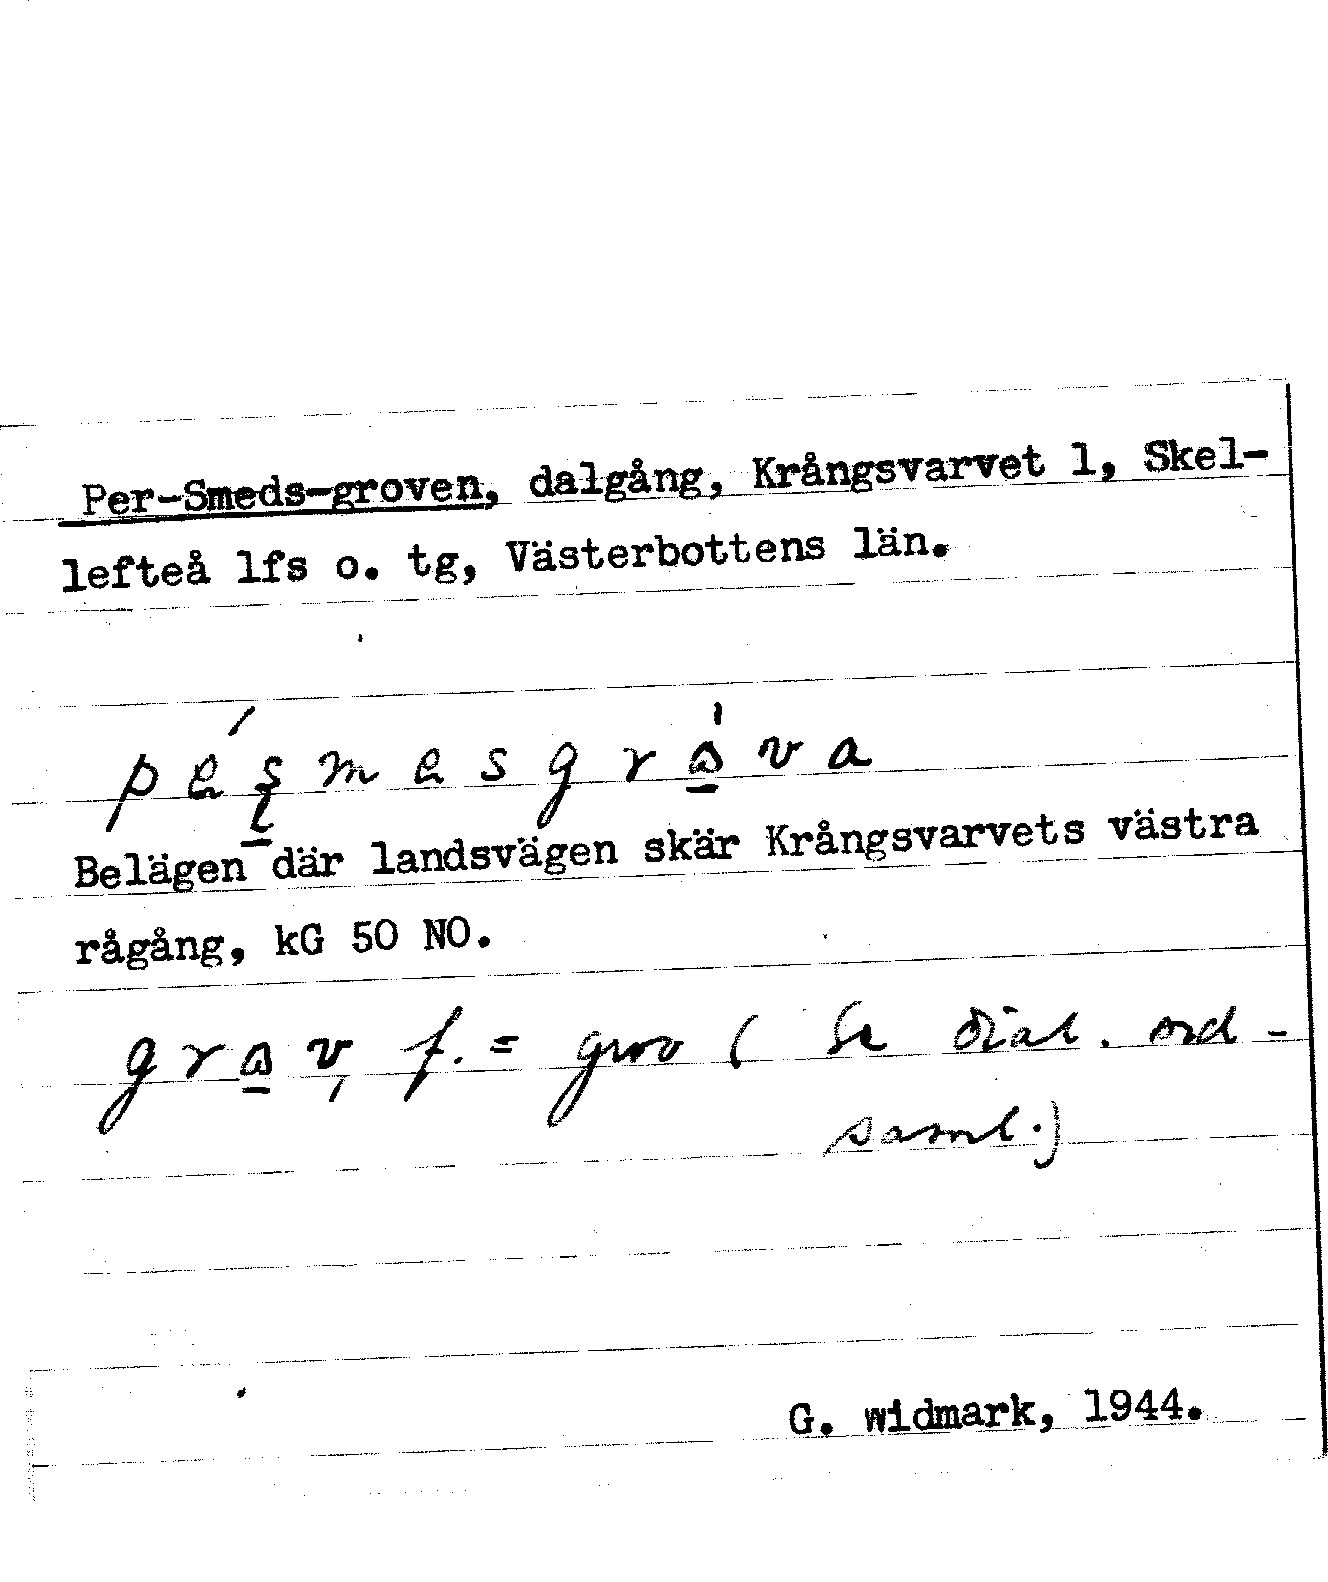 Per-Smeds-groven, dalgång, Krångsvarvet 1, Skel-
lefteå lfs o. tg, Västerbottens län.
Belägen där landsvägen skär Krångsvarvets västra
rågång, kG 50 NO.
f. = grov ( Se dial. ord-
saml.)
G. widmark, 1944.